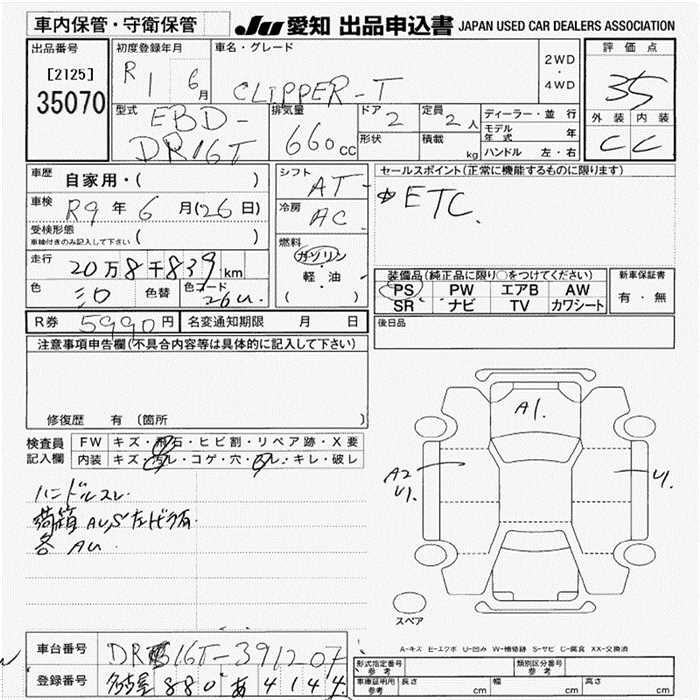 車内保管・守衛保管 JU 愛知 出品申込書 JAPAN USED CAR DEALERS ASSOCIATION
出品番号 初度登録年月 車名・グレード 2WD・4WD 評価点
[2125] R1 6月 CLIPPER-T 35
35070
型式 EBD-DR16T 排気量 660cc ドア 2 定員 2人 ディーラー・並行 外装 内装
形状 積載 kg モデル年式 年 C C
ハンドル 左・右
車歴 自家用・( ) シフト AT セールスポイント(正常に機能するものに限ります)
車検 R9年6月(26日) 冷房 AC ETC
受検形態 車検付きのみ記入して下さい ( ) 燃料 ガソリン
走行 20万8千839km 軽・油 装備品(純正品に限り○をつけてください) 新車保証書
色 シロ 色替 色コード 26U ( ) PS PW エアB AW 有・無
SR ナビ TV カワシート
R券 5990円 名変通知期限 月 日 後日品
注意事項申告欄(不具合内容等は具体的に記入して下さい)
修復歴 有 (箇所
検査員記入欄 FW キズ・飛石・ヒビ割・リペア跡・X要
内装 キズ・汚レ・コゲ・穴・スレ・キレ・破レ
A1.
A2 U1. U1.
ハンドルスレ
荷箱 AU,S
各 AU.
スペア
A-キズ E-エクボ U-凹み W-補修跡 S-サビ C-腐食 XX-交換済
車台番号 DR16T-391207 形式指定番号 参考 類別区分番号 参考
登録番号 名古屋 880 あ 4144 車庫証明用 参考 長さ cm 幅 cm 高さ cm